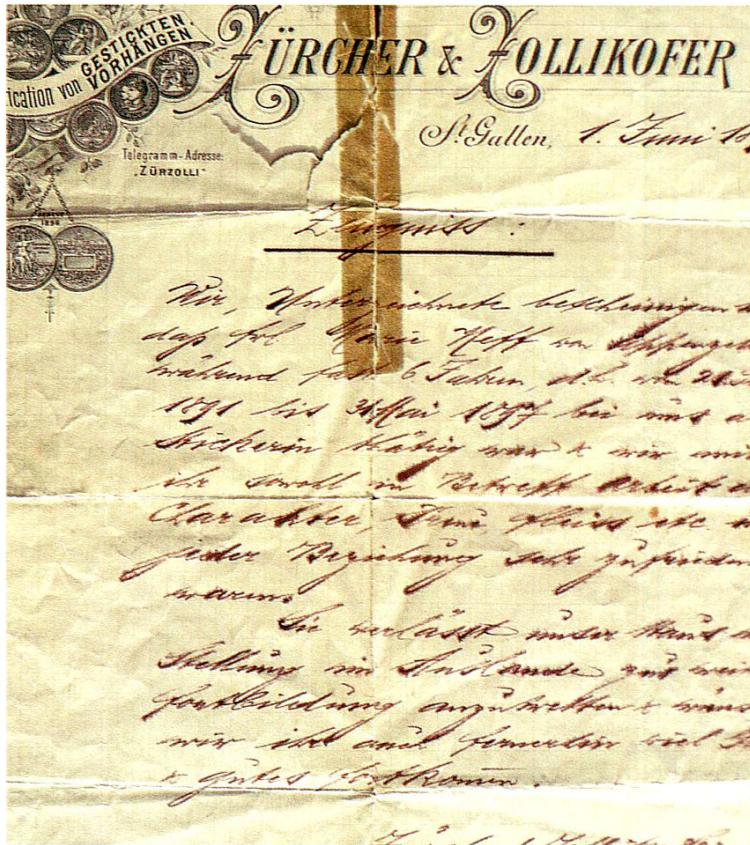 GESTICKTEN
ication von VORHÄNGEN
ZÜRCHER & ZOLLIKOFER
St. Gallen, 1. Juni 18
Telegramm-Adresse:
"ZÜRZOLLI"
Zeugniss:
Wir, Unterzeichnete bescheinigen
daß Frl. Marie Neff von Appenzell
während fast 6 Jahren, d.h. von 21.
1891 bis 31 Mai 1897 bei uns a
Stickerin thätig war & wir mit
ihr sowohl in Betreff Arbeit
Charakter, Treue, Fleiss etc.
jeder Beziehung sehr zufrieden
waren.
Sie verlässt unser Haus
Stellung im Auslande zur
Fortbildung anzutretten &
wir ihr auch fernerhin viel
& gutes Fortkommen.